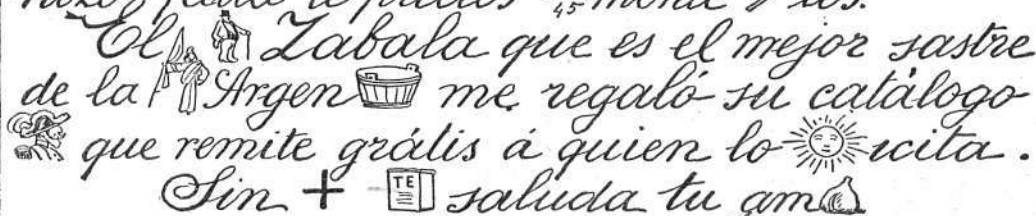 precios 45
El Zabala que es el mejor sastre
de la Argen me regaló su catálogo
que remite grátis á quien lo icita.
Sin + TE saluda tu am